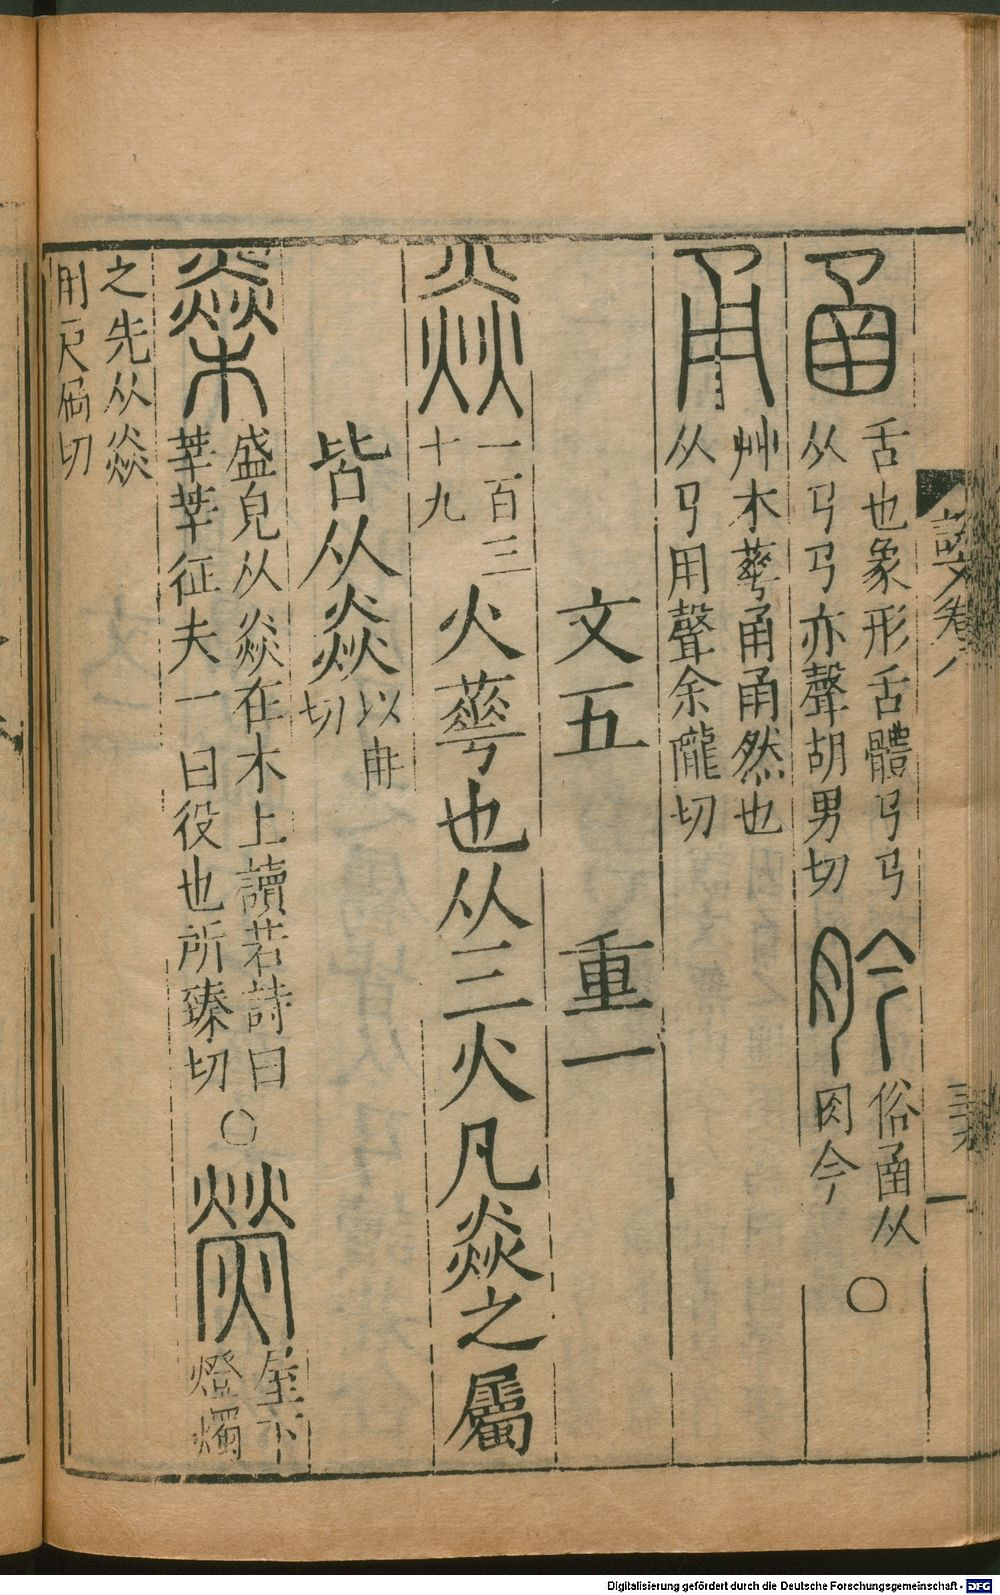 說文卷八
三六
舌也象形舌體𢎘𢎘
从𢎘𢎘亦聲胡男切
俗㕯从
肉今
○
艸木蕚甬甬然也
从𢎘用聲余隴切
文五 重一
焱
一百三
十九
火蕚也从三火凡焱之屬
皆从焱
以冉
切
燊
盛皃从焱在木上讀若詩曰
莘莘征夫一曰役也所臻切
○
屋下
燈燭
之先从焱
冂戶扃切
Digitalisierung gefördert durch die Deutsche Forschungsgemeinschaft - DFG